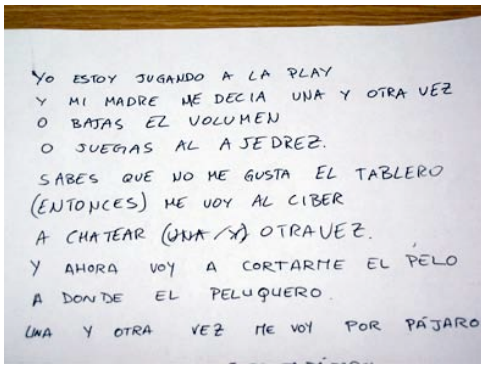 YO ESTOY JUGANDO A LA PLAY
Y MI MADRE ME DECIA UNA Y OTRA VEZ
O BAJAS EZ VOLUMEN
O JUEGAS AL AJEDREZ.
SABES QUE NO ME GUSTA EL TABLERO
(ENTONCES) ME VOY AL CIBER
A CHATEAR (UNA /Y) OTRAVEZ.
Y AHORA VOY A CORTARME EL PELO
A DONDE EL PELUQUERO.
UNA Y OTRA VEZ ME VOY POR PÁJARO